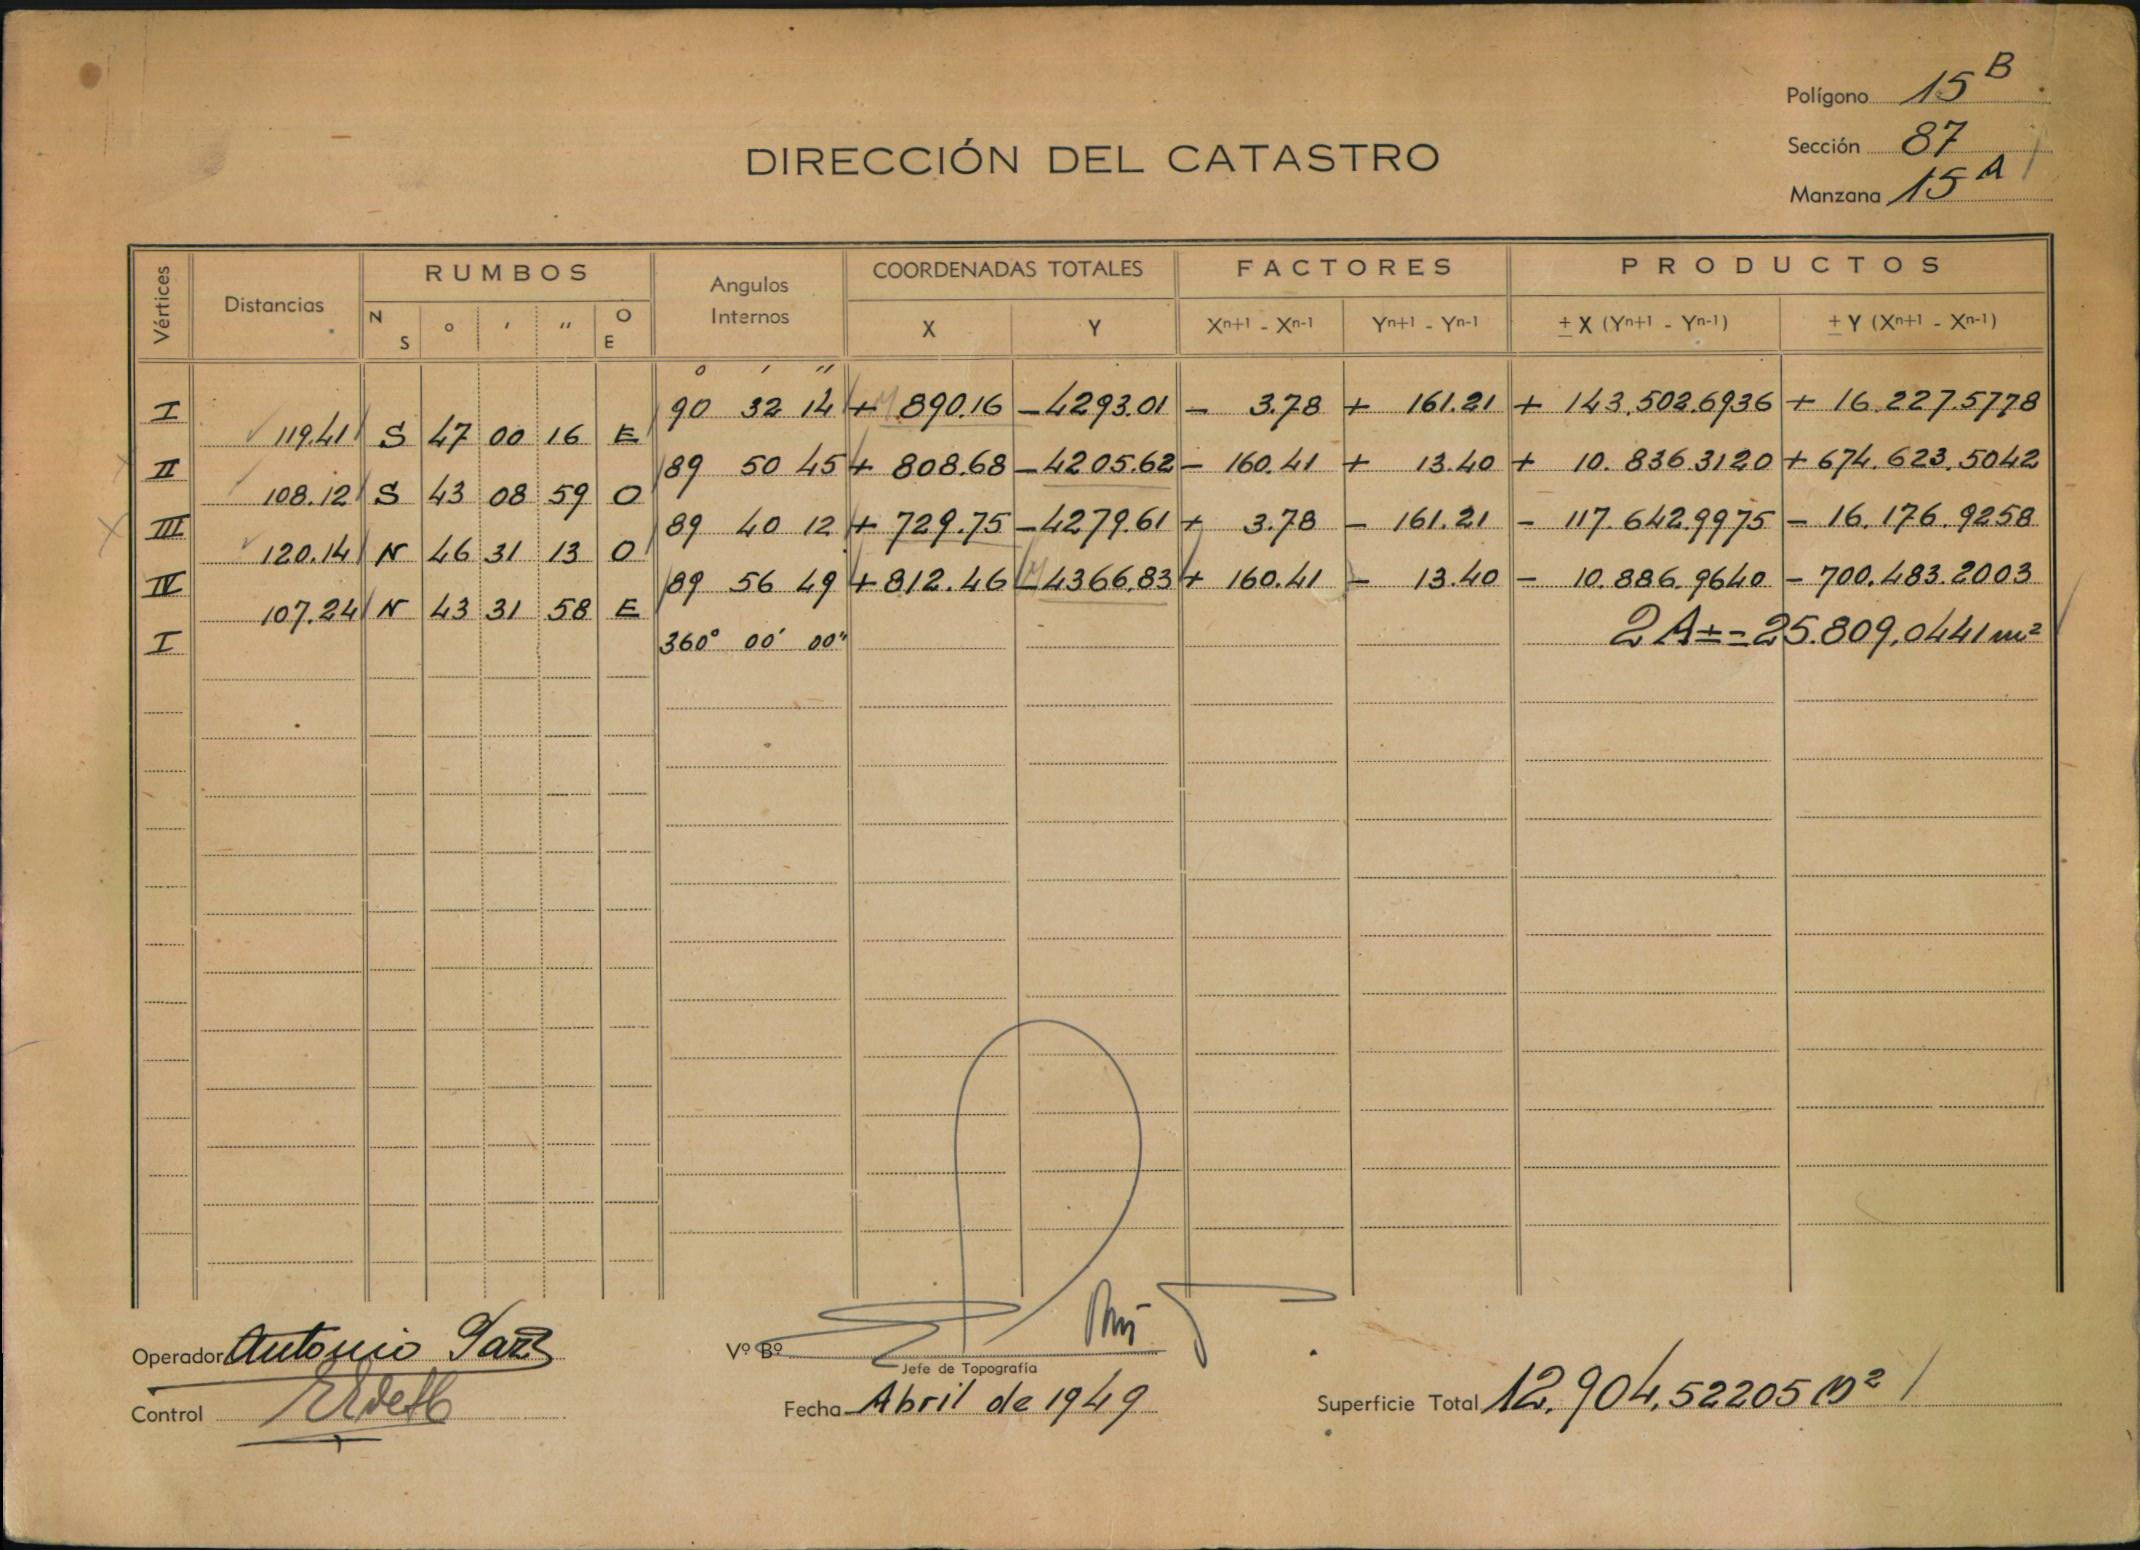 Polígono 15 B
Sección 87
Manzana 15 A
DIRECCIÓN DEL CATASTRO
Vértices Distancias RUMBOS Angulos Internos COORDENADAS TOTALES FACTORES PRODUCTOS
N S ° ' " O E X Y Xn+1 - Xn-1 Yn+1 - Yn-1 ± X (Yn+1 - Yn-1) ± Y (Xn+1 - Xn-1)
° ' "
I 90 32 14 + 890.16 - 4293.01 - 3.78 + 161.21 + 143.502.6936 + 16.227.5778
119.41 S 47 00 16 E
II 89 50 45 + 808.68 - 4205.62 - 160.41 + 13.40 + 10.836.3120 + 674.623.5042
108.12 S 43 08 59 O
III 89 40 12 + 729.75 - 4279.61 + 3.78 - 161.21 - 117.642.9975 - 16.176.9258
120.14 N 46 31 13 O
IV 89 56 49 + 812.46 - 4366.83 + 160.41 - 13.40 - 10.886.9640 - 700.483.2003
107.24 N 43 31 58 E
I 360° 00' 00" 2A ± = 25.809,0441 m²
Operador Antonio
Vº Bº
Jefe de Topografía
Control
Fecha Abril de 1949
Superficie Total 12.904,52205 m²